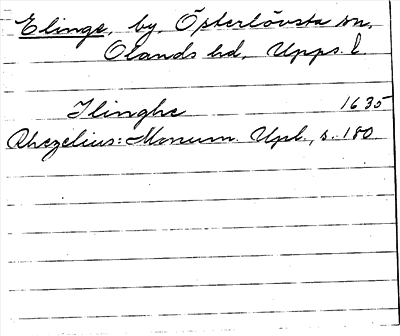 Elinge, by, Österlövsta sn,
Olands hd, Upps. l.
Ilinghe 1635
Rhezelius: Monum. Upl., s. 180